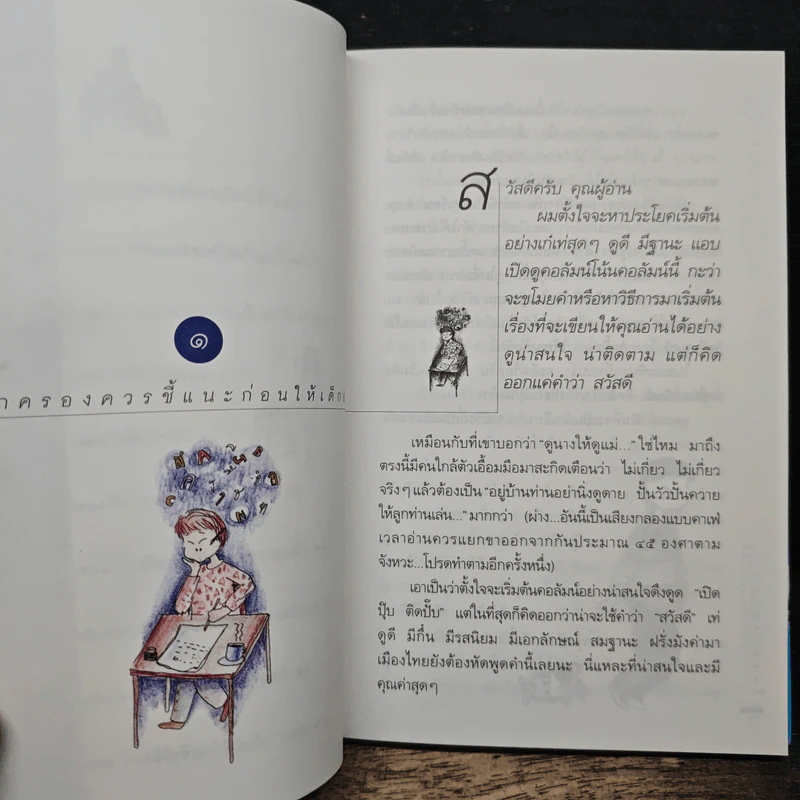 ๑
ครองควรชี้แนะก่อนให้เด็ก
สวัสดีครับ คุณผู้อ่าน
ผมตั้งใจจะหาประโยคเริ่มต้น
อย่างเก๋เท่สุดๆ ดูดี มีฐานะ แอบ
เปิดดูคอลัมน์โน้นคอลัมน์นี้ กะว่า
จะขโมยคำหรือหาวิธีการมาเริ่มต้น
เรื่องที่จะเขียนให้คุณอ่านได้อย่าง
ดูน่าสนใจ น่าติดตาม แต่ก็คิด
ออกแค่คำว่า สวัสดี
เหมือนกับที่เขาบอกว่า “ดูนางให้ดูแม่...” ใช่ไหม มาถึง
ตรงนี้มีคนใกล้ตัวเอื้อมมือมาสะกิดเตือนว่า ไม่เกี่ยว ไม่เกี่ยว
จริงๆ แล้วต้องเป็น “อยู่บ้านท่านอย่านิ่งดูดาย ปั้นวัวปั้นควาย
ให้ลูกท่านเล่น...” มากกว่า (ผ่าง...อันนี้เป็นเสียงกลองแบบคาเฟ่
เวลาอ่านควรแยกขาออกจากกันประมาณ ๔๕ องศาตาม
จังหวะ...โปรดทำตามอีกครั้งหนึ่ง)
เอาเป็นว่าตั้งใจจะเริ่มต้นคอลัมน์อย่างน่าสนใจดึงดูด “เปิด
ปุ๊บ ติดปั๊บ” แต่ในที่สุดก็คิดออกว่าน่าจะใช้คำว่า “สวัสดี” เท่
ดูดี มีกึ๋น มีรสนิยม มีเอกลักษณ์ สมฐานะ ฝรั่งมังค่ามา
เมืองไทยยังต้องหัดพูดคำนี้เลยนะ นี่แหละที่น่าสนใจและมี
คุณค่าสุดๆ